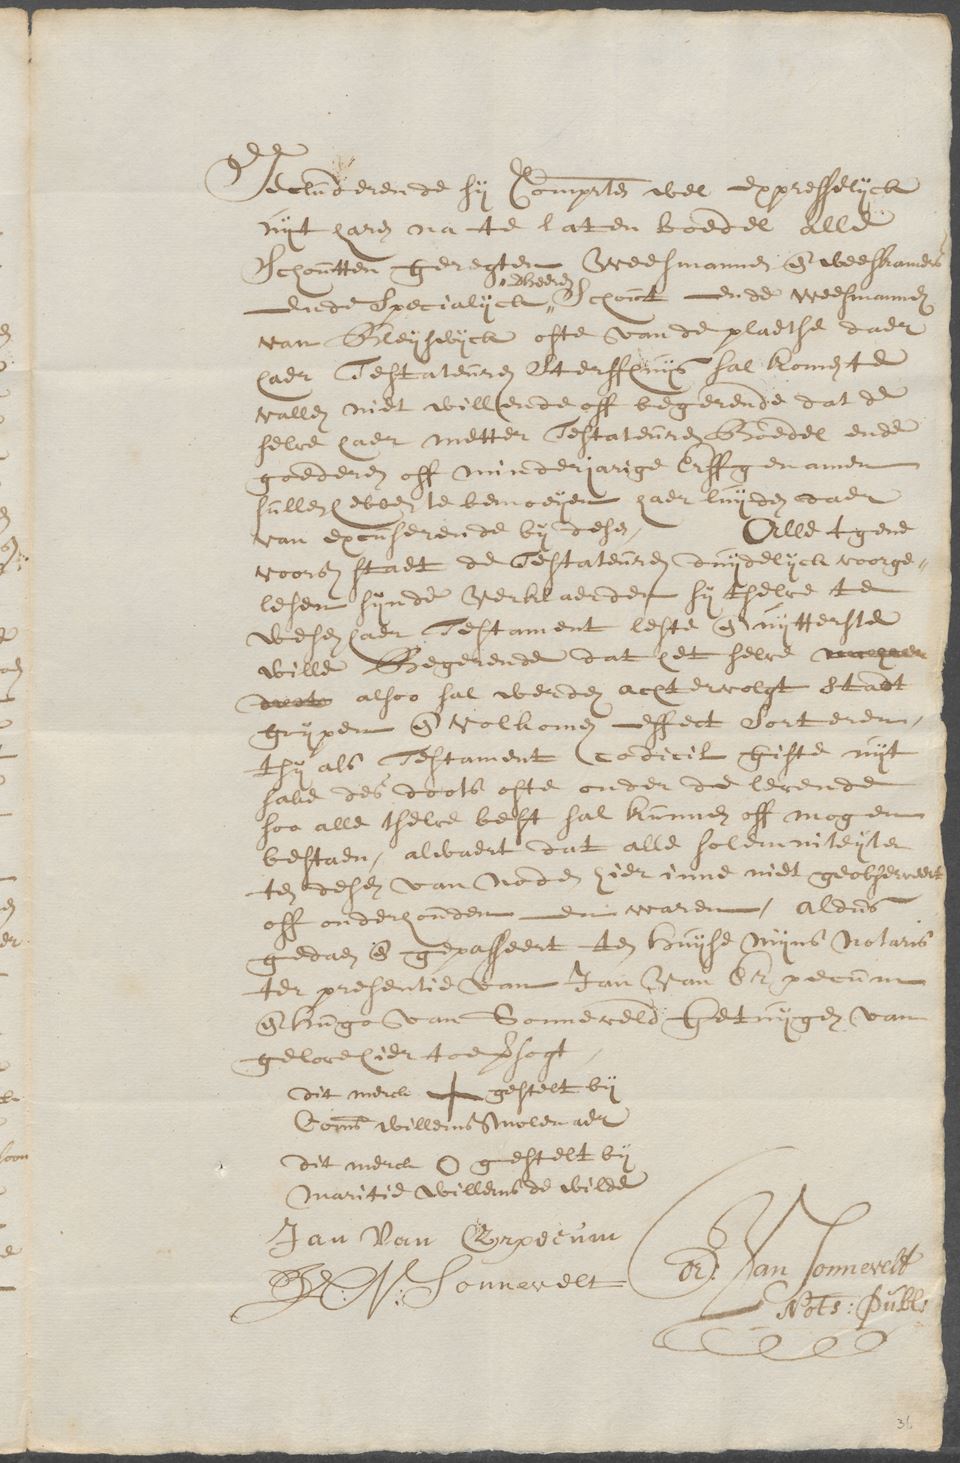 Secluderende sij Comprten wel expresselijck
uijt haren na te laten boedel alle
Schoutten geregten Weesmannen & weeskamers
ende specialijck de Heeren Schout ende weesmannen
van Bleyswyck ofte van de plaetse daer
haer Testateuren Sterffhuijs sal komen te
vallen niet willende off begerende dat de
selve haer metter Testateuren Boedel ende
goederen off minderjarige Erffgenamen
sullen hebben te bemoeyen haer luijden daer
van excuserende bij desen, Alle tgene
voorsz staet de Testateuren duijdelijck voorge„
lesen sijnde Verklaerden sij tselve te
wesen haer Testament leste & uijtterste
wille Begerende dat het selve
alsoo sal werden achtervolgt Stadt
grijpen & volkomen effect Sorteren,
tsij als Testament Codicil gifte uijt
sake des doots ofte onder de levende
soo alle tselve best sal kunnen off mogen
bestaen, alwaert dat alle solemniteyten
ten desen van Noden hier inne niet geobserveert
off onderhouden en waren, aldus
gedaen & gepasseert ten huijse mijns Notaris
ter presentie van Jan Van Erpecum
& Hugo van Sonneveld getuijgen van
gelove hier toe versogt,
dit merck + gestelt bij
Corns willems Molenaer
dit merck O gestelt bij
Maritie willems de wilde
Jan Van Erpecum
H: V: Sonnevelt
Jan Sonnevelt
Nots: Publ:
36